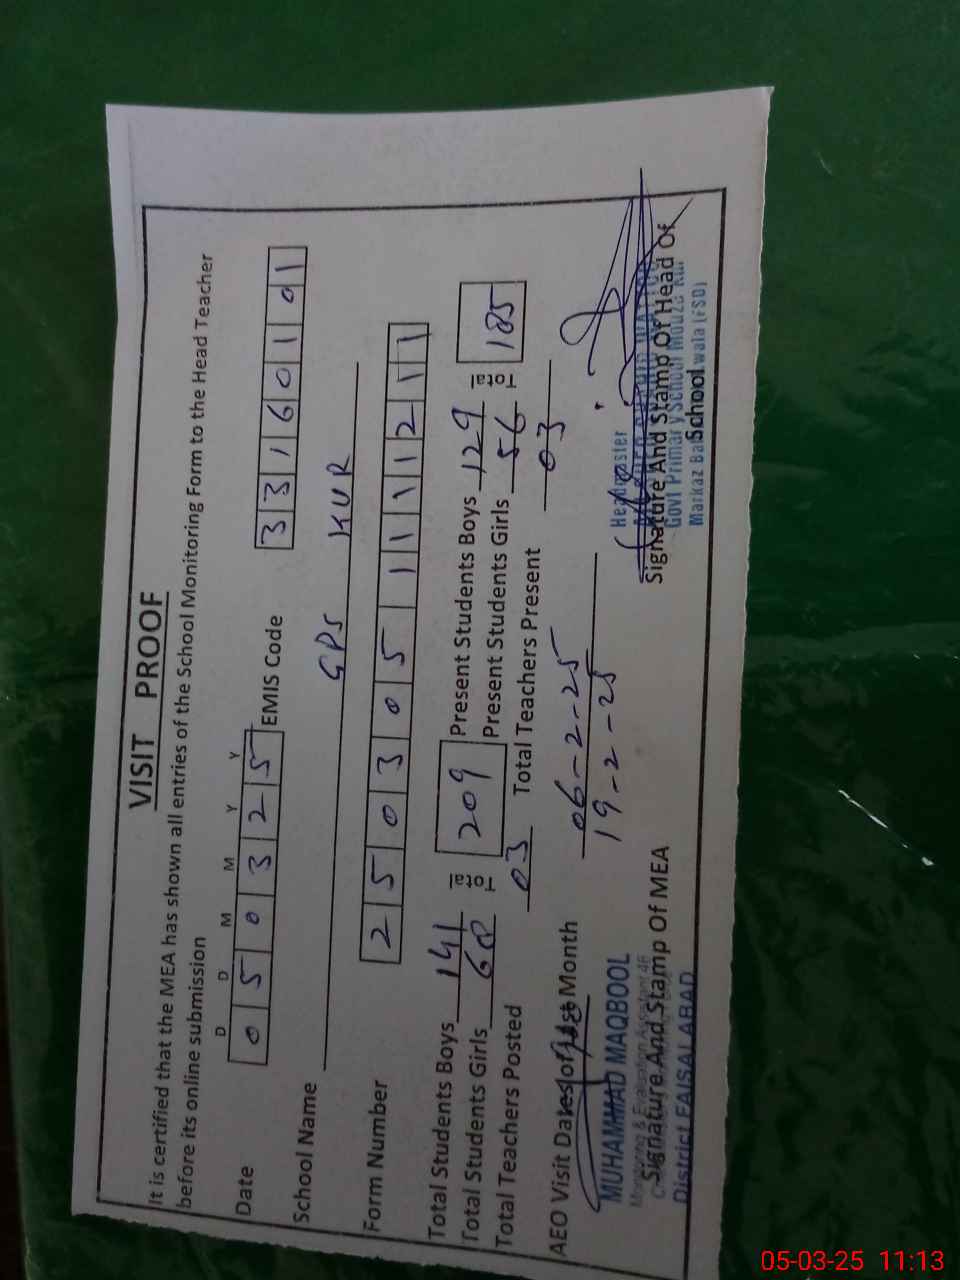 VISIT PROOF
It is certified that the MEA has shown all entries of the School Monitoring Form to the Head Teacher
before its online submission
D D M M Y Y
Date 0 5 0 3 2 5 EMIS Code 3 3 1 6 0 1 0 1
School Name GPS KUR
Form Number 2 5 0 3 0 5 1 1 1 2 1 1
Total Students Boys 141 Total 209 Present Students Boys 129 Total 185
Total Students Girls 68 Present Students Girls 56
Total Teachers Posted 03 Total Teachers Present 03
AEO Visit Dates of last Month 06-2-25
19-2-25
MUHAMMAD MAQBOOL
Monitoring & Evaluation Assistant 46
Signature And Stamp Of MEA
District FAISALABAD
Headmaster
Govt Primary School Mouza
Signature And Stamp Of Head Of
School
Markaz wala (FSD)
05-03-25 11:13